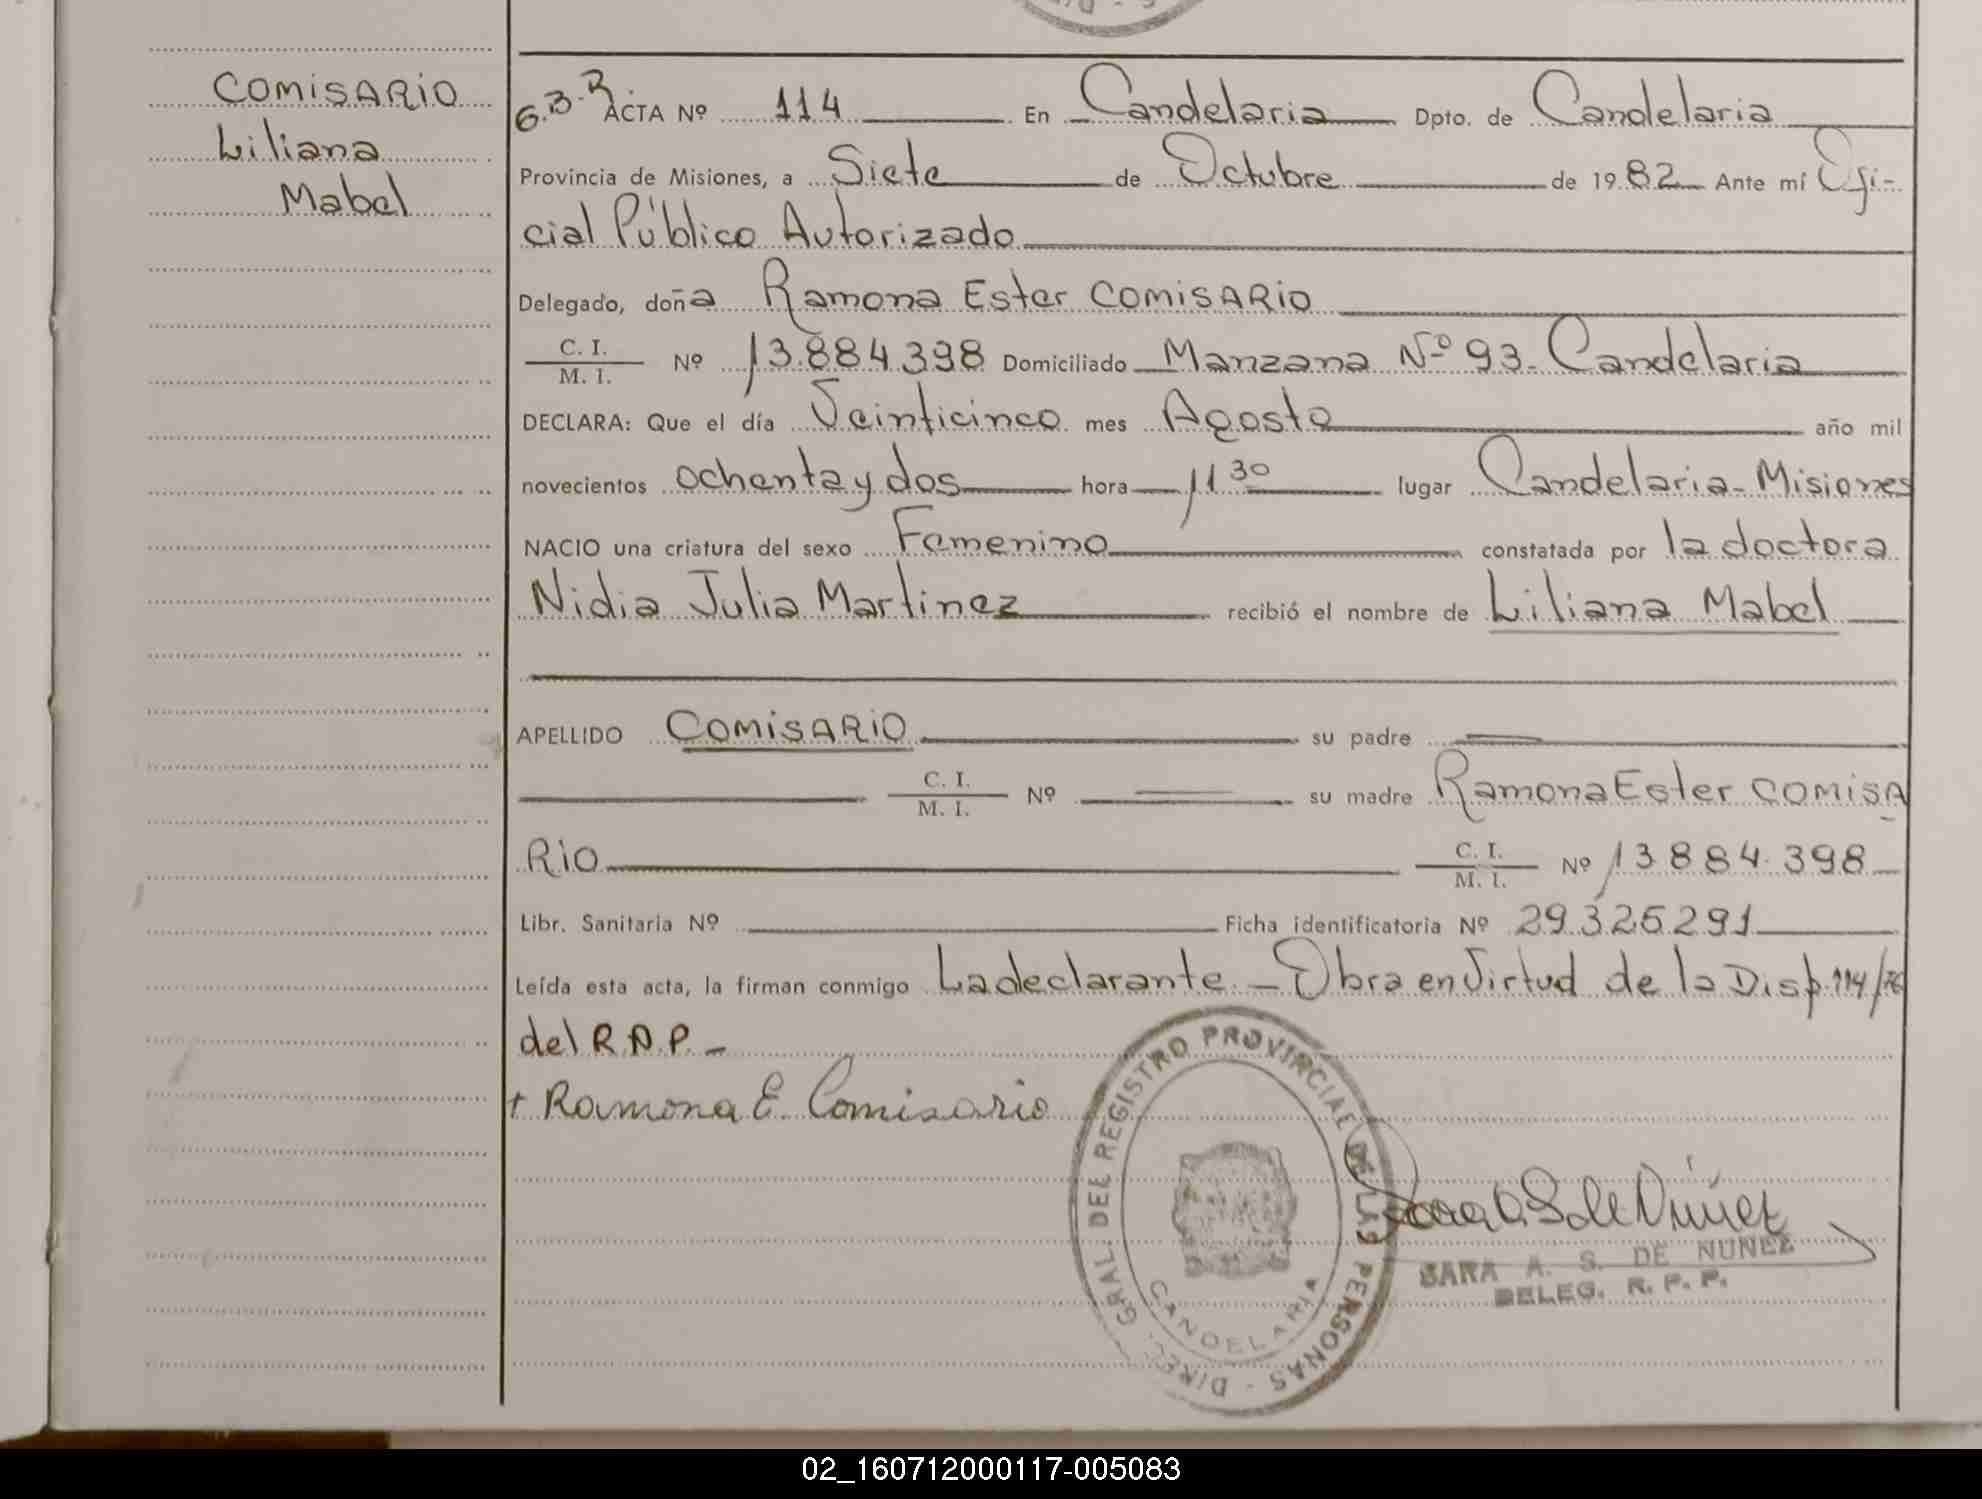 COMISARIO
Liliana
Mabel
G.B.R. ACTA Nº 114 En Candelaria Dpto. de Candelaria
Provincia de Misiones, a Siete de Octubre de 1982 Ante mí Ofi-
cial Público Autorizado
Delegado, doña Ramona Ester COMISARIO
C. I.
M. I. Nº 13.884.398 Domiciliado Manzana Nº 93. Candelaria
DECLARA: Que el día Veinticinco mes Agosto año mil
novecientos ochenta y dos hora 11 30 lugar Candelaria - Misiones
NACIO una criatura del sexo Femenino constatada por la doctora
Nidia Julia Martinez recibió el nombre de Liliana Mabel
APELLIDO COMISARIO su padre
C. I.
M. I. Nº su madre Ramona Ester COMISA
RIO C. I.
M. I. Nº 13.884.398
Libr. Sanitaria Nº Ficha identificatoria Nº 29.325.291
Leída esta acta, la firman conmigo La declarante - Obra en Virtud de la Disp. 114/76
del R.N.P. -
+ Ramona E. Comisario
DIREC. GRAL. DEL REGISTRO PROVINCIAL DE LAS PERSONAS -
CANDELARIA
Sara A. S. de Núñez
SARA A. S. DE NUÑEZ
DELEG. R. P. P.
02_160712000117-005083